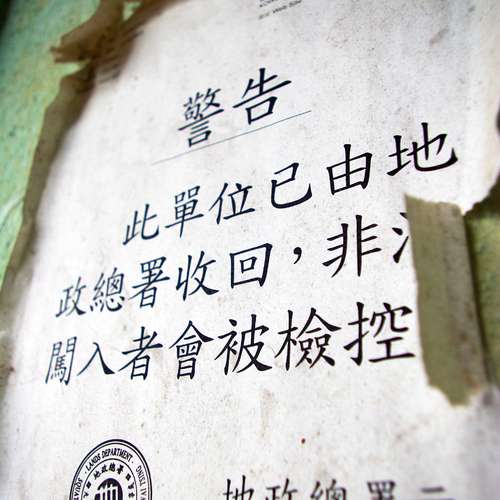 警告
此單位已由地
政總署收回，非
闖入者會被檢控
LANDS DEPARTMENT
地政總署
地政總署